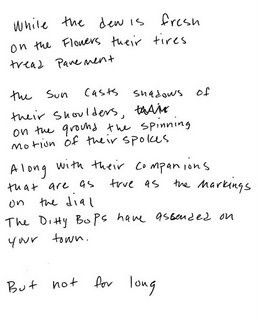 While the dew is fresh
on the Flowers their tires
tread Pavement
the Sun Casts shadows of
their shoulders,
on the ground the spinning
motion of their spokes
Along with their Companions
that are as true as the markings
on the dial
The Ditty Bops have ascended on
your town.
But not for long